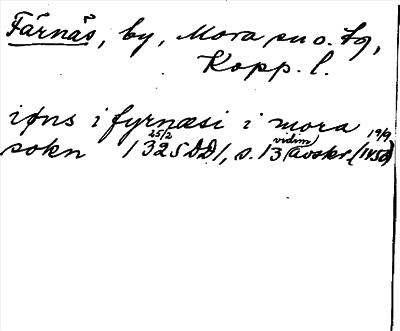 Färnäs, by, Mora sn o. tg,
Kopp. l.
iþns i fyrnæsi i mora
sokn 25/2 1325 DD 1, s. 13 (vidim avskr. 19/9 1450)